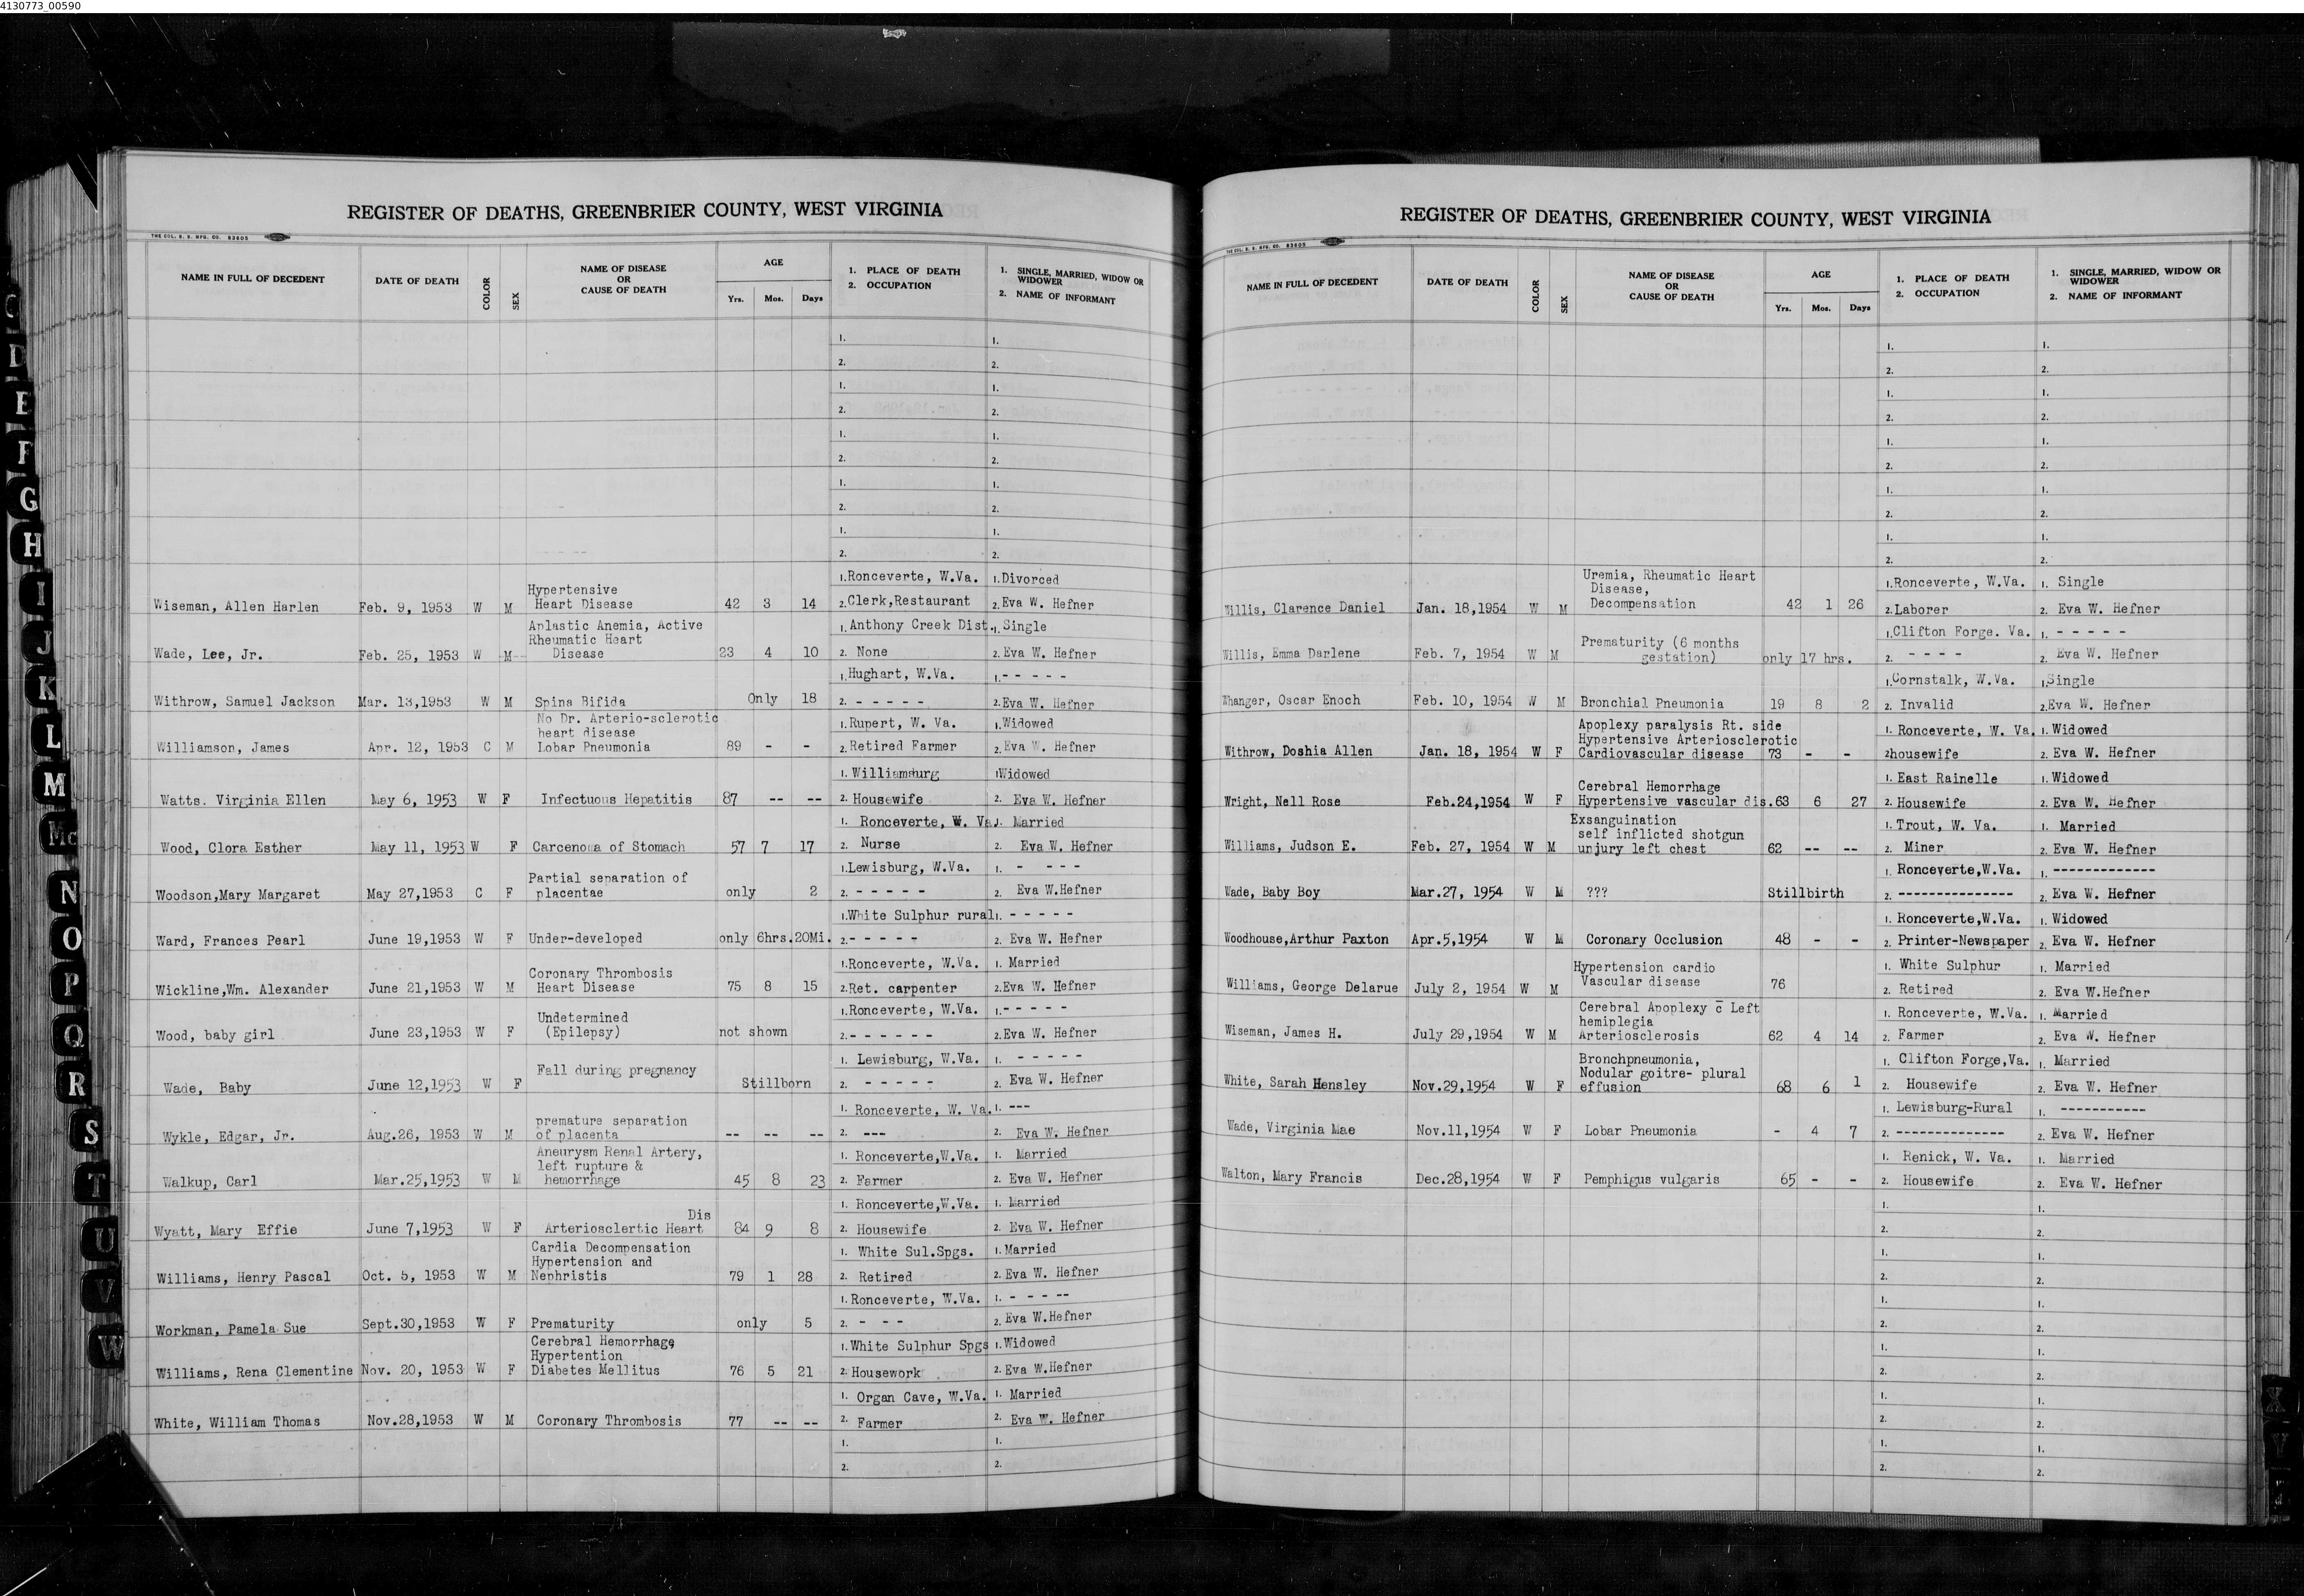 4130773_00590
REGISTER OF DEATHS, GREENBRIER COUNTY, WEST VIRGINIA
THE COL. B. B. MFG. CO. 83605
NAME IN FULL OF DECEDENT DATE OF DEATH COLOR SEX NAME OF DISEASE OR CAUSE OF DEATH AGE Yrs. Mos. Days 1. PLACE OF DEATH 2. OCCUPATION 1. SINGLE, MARRIED, WIDOW OR WIDOWER 2. NAME OF INFORMANT
1. 1.
2. 2.
1. 1.
2. 2.
1. 1.
2. 2.
1. 1.
2. 2.
1. 1.
2. 2.
Hypertensive 1. Ronceverte, W.Va. 1. Divorced
Wiseman, Allen Harlen Feb. 9, 1953 W M Heart Disease 42 3 14 2. Clerk,Restaurant 2. Eva W. Hefner
Aplastic Anemia, Active 1. Anthony Creek Dist. 1. Single
Rheumatic Heart
Wade, Lee, Jr. Feb. 25, 1953 W M Disease 23 4 10 2. None 2. Eva W. Hefner
1. Hughart, W.Va. 1. - - - - -
Withrow, Samuel Jackson Mar. 13,1953 W M Spina Bifida Only 18 2. - - - - - 2. Eva W. Hefner
No Dr. Arterio-sclerotic 1. Rupert, W. Va. 1. Widowed
heart disease
Williamson, James Apr. 12, 1953 C M Lobar Pneumonia 89 - - 2. Retired Farmer 2. Eva W. Hefner
1. Williamsburg 1. Widowed
Watts. Virginia Ellen May 6, 1953 W F Infectuous Hepatitis 87 -- -- 2. Housewife 2. Eva W. Hefner
1. Ronceverte, W. Va. 1. Married
Wood, Clora Esther May 11, 1953 W F Carcenoma of Stomach 57 7 17 2. Nurse 2. Eva W. Hefner
Partial separation of 1. Lewisburg, W.Va. 1. - - - -
Woodson,Mary Margaret May 27,1953 C F placentae only 2 2. - - - - - 2. Eva W.Hefner
1. White Sulphur rural 1. - - - - -
Ward, Frances Pearl June 19,1953 W F Under-developed only 6hrs.20Mi. 2. - - - - - 2. Eva W. Hefner
Coronary Thrombosis 1. Ronceverte, W.Va. 1. Married
Wickline,Wm. Alexander June 21,1953 W M Heart Disease 75 8 15 2. Ret. carpenter 2. Eva W. Hefner
Undetermined 1. Ronceverte, W.Va. 1. - - - - -
Wood, baby girl June 23,1953 W F (Epilepsy) not shown 2. - - - - - - 2. Eva W. Hefner
Fall during pregnancy 1. Lewisburg, W.Va. 1. - - - - -
Wade, Baby June 12,1953 W F Stillborn 2. - - - - - 2. Eva W. Hefner
premature separation 1. Ronceverte, W. Va. 1. ---
Wykle, Edgar, Jr. Aug.26, 1953 W M of placenta -- -- -- 2. --- 2. Eva W. Hefner
Aneurysm Renal Artery, 1. Ronceverte,W.Va. 1. Married
left rupture &
Walkup, Carl Mar.25,1953 W M hemorrhage 45 8 23 2. Farmer 2. Eva W. Hefner
Dis 1. Ronceverte,W.Va. 1. Married
Wyatt, Mary Effie June 7,1953 W F Arteriosclertic Heart 84 9 8 2. Housewife 2. Eva W. Hefner
Cardia Decompensation 1. White Sul.Spgs. 1. Married
Hypertension and
Williams, Henry Pascal Oct. 5, 1953 W M Nephristis 79 1 28 2. Retired 2. Eva W. Hefner
1. Ronceverte, W.Va. 1. - - - --
Workman, Pamela Sue Sept.30,1953 W F Prematurity only 5 2. - - - 2. Eva W.Hefner
Cerebral Hemorrhage 1. White Sulphur Spgs 1. Widowed
Hypertention
Williams, Rena Clementine Nov. 20, 1953 W F Diabetes Mellitus 76 5 21 2. Housework 2. Eva W.Hefner
1. Organ Cave, W.Va. 1. Married
White, William Thomas Nov.28,1953 W M Coronary Thrombosis 77 -- -- 2. Farmer 2. Eva W. Hefner
1. 1.
2. 2.
REGISTER OF DEATHS, GREENBRIER COUNTY, WEST VIRGINIA
THE COL. B. B. MFG. CO. 83605
NAME IN FULL OF DECEDENT DATE OF DEATH COLOR SEX NAME OF DISEASE OR CAUSE OF DEATH AGE Yrs. Mos. Days 1. PLACE OF DEATH 2. OCCUPATION 1. SINGLE, MARRIED, WIDOW OR WIDOWER 2. NAME OF INFORMANT
1. 1.
2. 2.
1. 1.
2. 2.
1. 1.
2. 2.
1. 1.
2. 2.
1. 1.
2. 2.
Uremia, Rheumatic Heart 1. Ronceverte, W.Va. 1. Single
Disease,
Willis, Clarence Daniel Jan. 18,1954 W M Decompensation 42 1 26 2. Laborer 2. Eva W. Hefner
Prematurity (6 months 1. Clifton Forge. Va. 1. - - - - -
Willis, Emma Darlene Feb. 7, 1954 W M gestation) only 17 hrs. 2. - - - - 2. Eva W. Hefner
1. Cornstalk, W.Va. 1. Single
Whanger, Oscar Enoch Feb. 10, 1954 W M Bronchial Pneumonia 19 8 2 2. Invalid 2. Eva W. Hefner
Apoplexy paralysis Rt. side 1. Ronceverte, W. Va. 1. Widowed
Hypertensive Arteriosclerotic
Withrow, Doshia Allen Jan. 18, 1954 W F Cardiovascular disease 73 - - 2. housewife 2. Eva W. Hefner
Cerebral Hemorrhage 1. East Rainelle 1. Widowed
Wright, Nell Rose Feb.24,1954 W F Hypertensive vascular dis. 63 6 27 2. Housewife 2. Eva W. Hefner
Exsanguination 1. Trout, W. Va. 1. Married
self inflicted shotgun
Williams, Judson E. Feb. 27, 1954 W M unjury left chest 62 -- -- 2. Miner 2. Eva W. Hefner
1. Ronceverte,W.Va. 1. -------------
Wade, Baby Boy Mar.27, 1954 W M ??? Stillbirth 2. --------------- 2. Eva W. Hefner
1. Ronceverte,W.Va. 1. Widowed
Woodhouse,Arthur Paxton Apr.5,1954 W M Coronary Occlusion 48 - - 2. Printer-Newspaper 2. Eva W. Hefner
Hypertension cardio 1. White Sulphur 1. Married
Vascular disease
Williams, George Delarue July 2, 1954 W M 76 2. Retired 2. Eva W.Hefner
Cerebral Apoplexy c̄ Left 1. Ronceverte, W.Va. 1. Married
hemiplegia
Wiseman, James H. July 29,1954 W M Arteriosclerosis 62 4 14 2. Farmer 2. Eva W. Hefner
Bronchpneumonia, 1. Clifton Forge,Va. 1. Married
Nodular goitre- plural
White, Sarah Hensley Nov.29,1954 W F effusion 68 6 1 2. Housewife 2. Eva W. Hefner
1. Lewisburg-Rural 1. -----------
Wade, Virginia Mae Nov.11,1954 W F Lobar Pneumonia - 4 7 2. -------------- 2. Eva W. Hefner
1. Renick, W. Va. 1. Married
Walton, Mary Francis Dec.28,1954 W F Pemphigus vulgaris 65 - - 2. Housewife 2. Eva W. Hefner
1. 1.
2. 2.
1. 1.
2. 2.
1. 1.
2. 2.
1. 1.
2. 2.
1. 1.
2. 2.
1. 1.
2. 2.
D
E
F
G
H
I
J
K
L
M
Mc
N
O
P
Q
R
S
T
U
V
W
X
Y